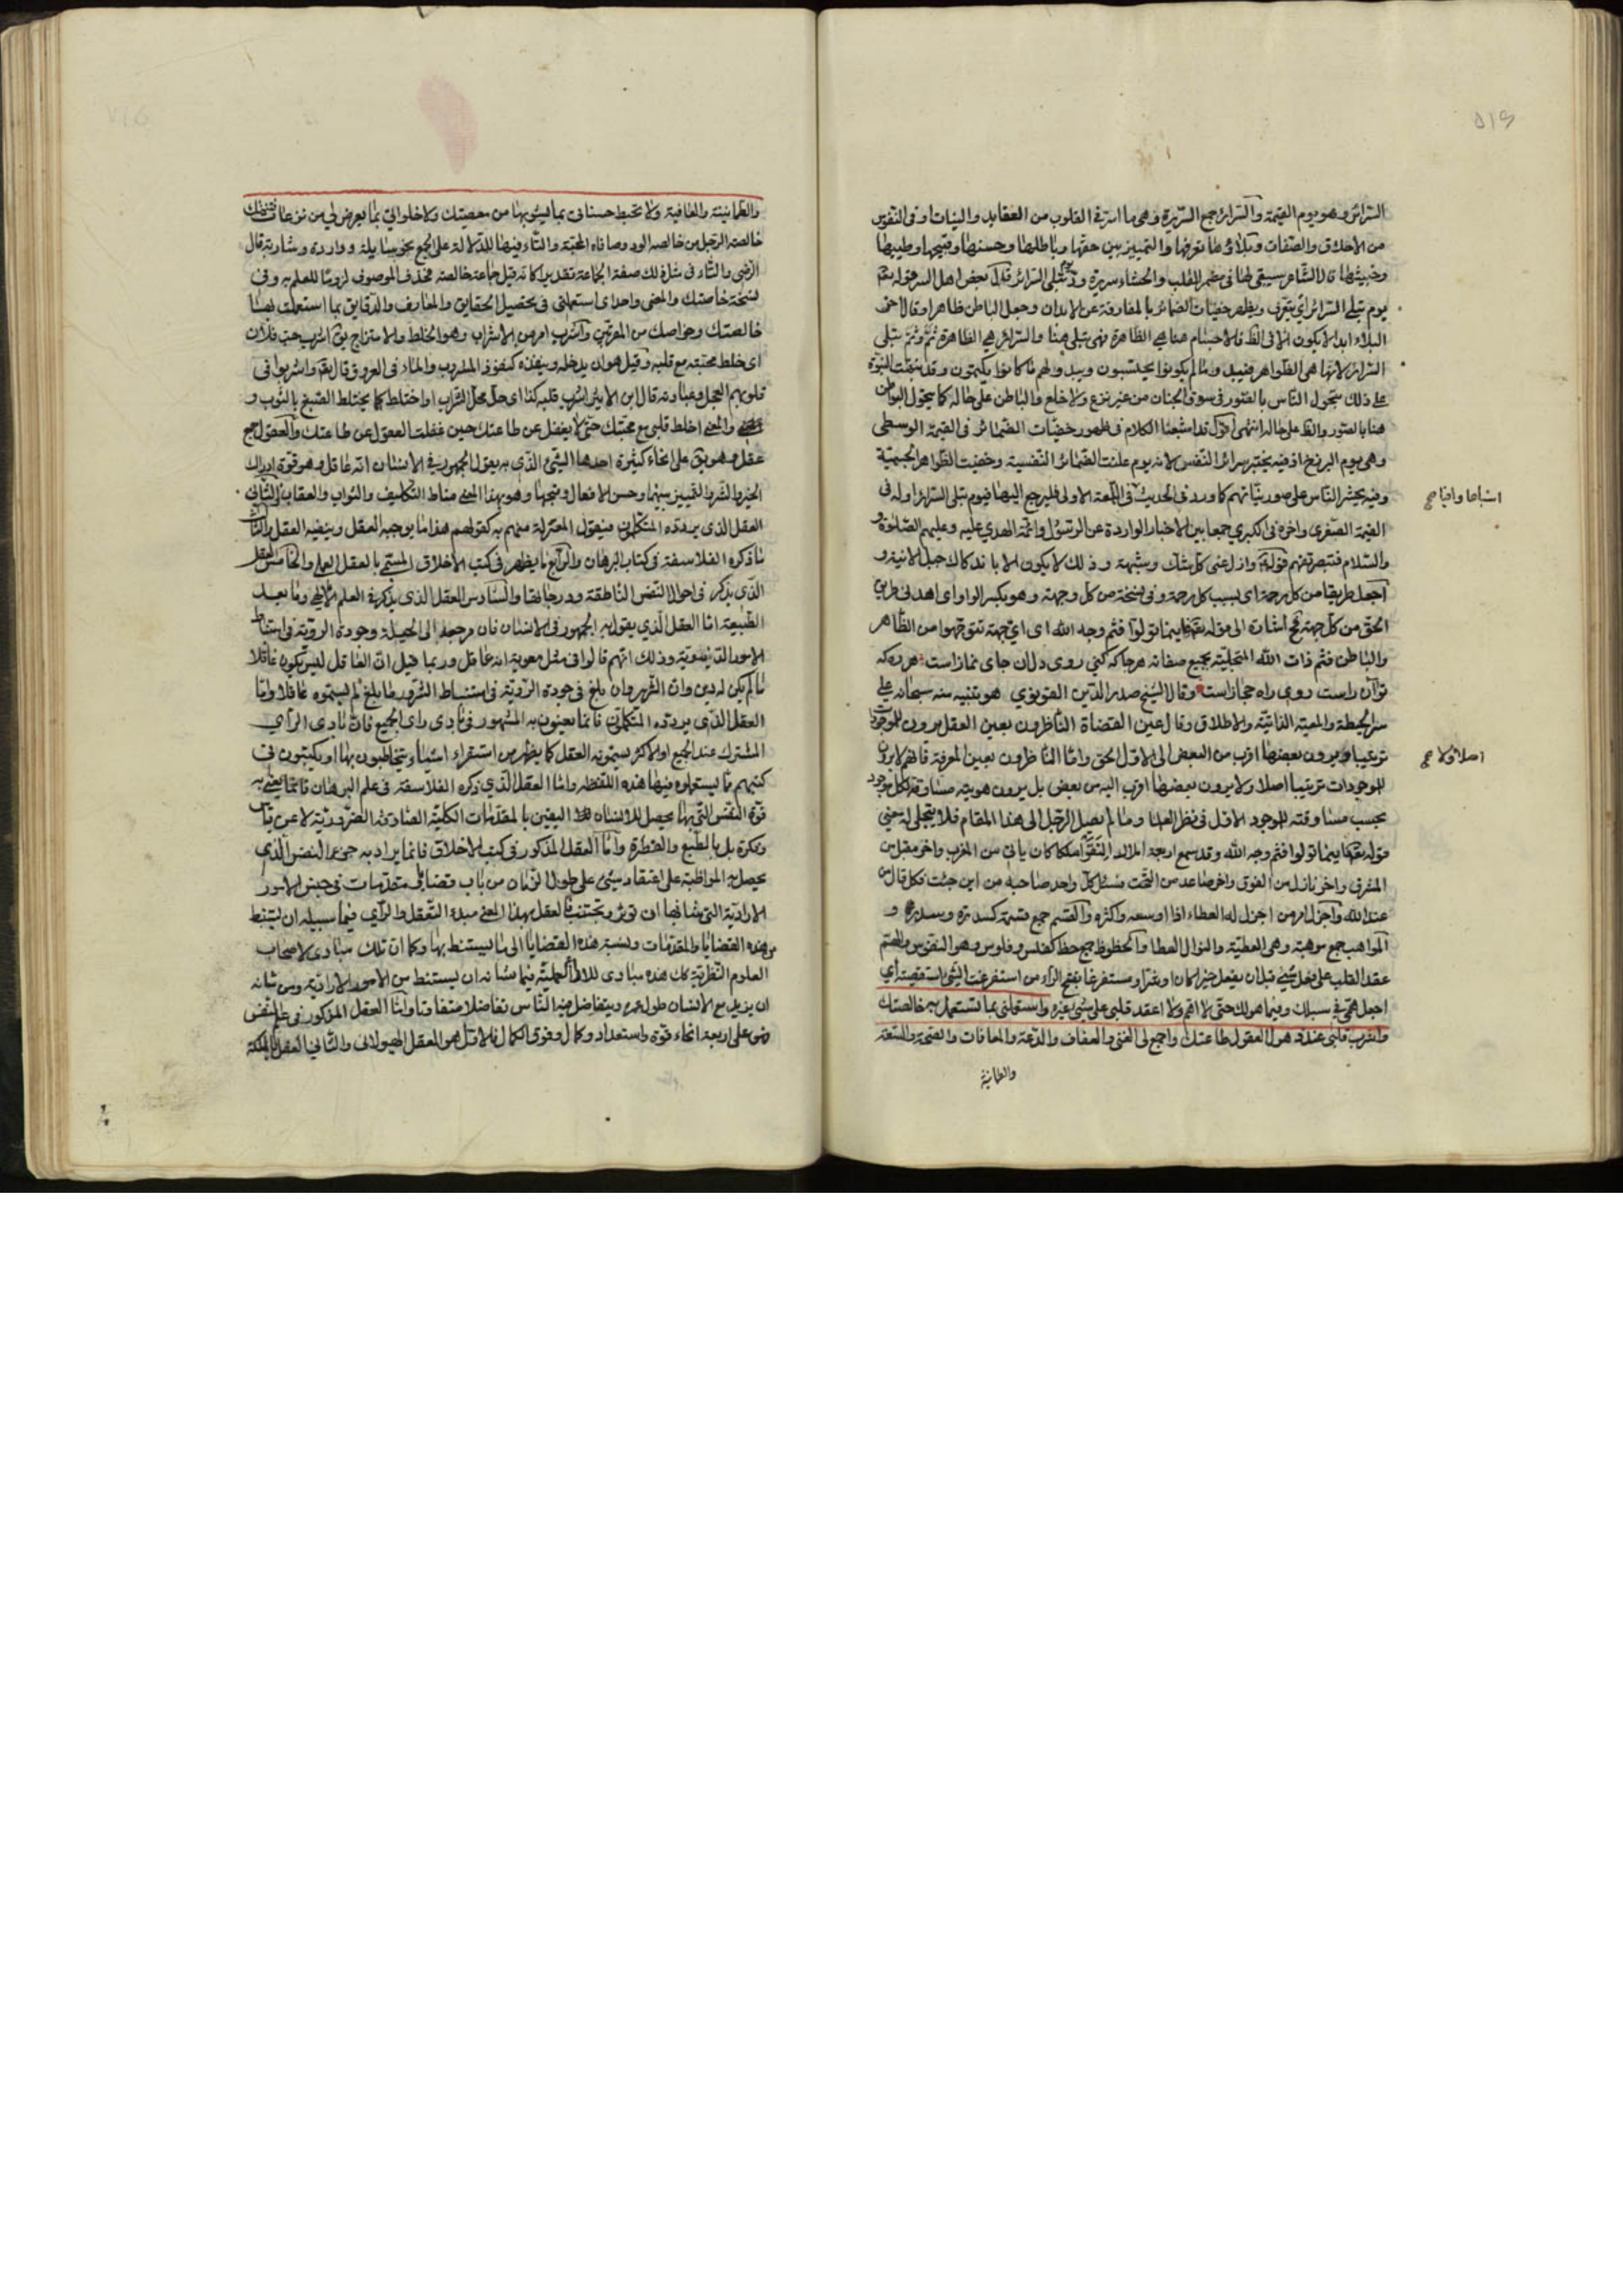 السرائر وهو يوم القيمة والسرائر جمع السريرة وهى ما اسر فى القلوب من العقايد والنيات او فى النفوس
من الاخلاق والصفات وبلاؤها تعرفها والتمييز بين حقها وباطلها وحسنها وقبيحها وطيبها
وخبيثها قال الشاعر سيبقى لها فى مضمر القلب والحشاء سريرة ود يوم تبلى السرائر قال بعض اهل السر قوله تعه
يوم تبلى السرائر اى يتعرف ويظهر خفيات الضمائر بالمفارقة عن الابدان وجعل الباطن ظاهرا وقال اخر
البلاء ابدا لا يكون الا فى الظ فالاجسام هنا هى الظاهرة فهى تبلى هنا والسرائر هى الظاهرة ثم وثم تبلى
السرائر لانها هى الظواهر فيبدو ما لم يكونوا يحتسبون ويبدو لهم ما كانوا يكتمون وقد نبهت النبوة
على ذلك بتحول الناس بالصور فى سوق الجنان من غير نزع ولا خلع والباطن على حاله كما يتحول البواطن
هنا بالصور والظ على حاله انتهى اقول قد اشبعنا الكلام فى ظهور خفيات الضمائر فى القيمة الوسطى
وهى يوم البرزخ اذ فيه يختبر سرائر النفس لانه يوم علنت الضمائر النفسية وخفيت الظواهر الجسمية
وفيه يحشر الناس على صور نياتهم كما ورد فى الحديث فى اللمعة الاولى فليرجع اليها فيوم تبلى السرائر اوله فى
القيمة الصغرى واخره فى الكبرى جمعا بين الاخبار الواردة عن الرسول وائمة الهدى عليه وعليهم الصلوة
والسلام فتبصر تفهم قوله وازل عنى كل شك وشبهة وذلك لا يكون الا باندكاك جبل الانية و
اجعل طريقا من كل رحمة اى بسبب كل رحمة وفى نسخة من كل وجهة وهو بكسر الواو اى اهدنى طريق
الحق من كل جهة فح اشارة الى قوله تعه فاينما تولوا فثم وجه الله اى اى جهة تتوجهوا من الظاهر
والباطن فثم ذات الله المتجلية بجميع صفاته هر جا كه كنى روى دلان جاى نماز است هر ره كه
توان راست روى راه حجاز است وقال الشيخ صدر الدين القونوى هو تنبيه منه سبحانه على
سر الحيطة والمعية الذاتية والاطلاق وقال عين القضاة الناظرون بعين العقل يرون للموجودات
ترتيبا ويرون بعضها اقرب من البعض الى الاول الحق واما الناظرون بعين المعرفة فانهم لا يرون
للموجودات ترتيبا اصلا ولا يرون بعضها اقرب اليه من بعض بل يرون هويته مساوقة لكل موجود
بحسب مساوقته للموجود الاول فى نظر العلماء وما لم يصل الرجل الى هذا المقام فلا يتجلى له معنى
قوله تعه فاينما تولوا فثم وجه الله وقد سمع اربعة املاك التقوا ملكا كان ياتى من المغرب واخر مقبل من
المشرق واخر نازل من الفوق واخر صاعد من التحت فسئل كل واحد صاحبه من اين جئت فكل قال من
عند الله واجزل امر من اجزل له العطاء اذا اوسعه واكثره والقسم جمع قسمة كسدرة وسدر و
المواهب جمع موهبة وهى العطية والنوال العطا والحظوظ جمع حظ كفلس وفلوس وهو النصيب والهمم
عقد القلب على فعل شئ قبل ان يفعل خيرا كان او شرا ومستفرغا بفتح الراء من استفرغت الشئ استقصيته اى
اجعل همى فى سبيلك وفيما هو لك حتى لا اهم ولا اعقد قلبى على شئ غيره واستعملنى بما تستعمل به خالصتك
واشرب قلبى عند ذهول العقول طاعتك واجمع لى الغنى والعفاف والدعة والمعافات والصحة والسعة
والطمانينة
اشباحا واقباح
اصلا ولا
والطمانينة والعافية ولا تحبط حسناتى بما يشوبها من معصيتك ولا خلواتى بما يعرض لى من نزغات فتنتك
خالصة الرجل من خالصه الود وصافاه المحبة والتاء فيها للدلالة على الجمع نحو سايلة وواردة وشاربة قال
الرضى والتاء فى مثل ذلك صفة الجماعة تقديرا كانه قيل جماعة خالصة فحذف الموصوف لزوما للعلم به وفى
نسخة خاصتك والمعنى واحد اى استعملنى فى تحصيل الحقايق والمعارف والدقايق بما استعملت بهما
خالصتك وخواصك من المقربين واشرب امر من الاشراب وهو الخلط والامتزاج يق اشرب حب فلان
اى خلط محبته مع قلبه وقيل هو ان يدخله وينفذه كنفوذ المشروب والماء فى العروق قال تعه واشربوا فى
قلوبهم العجل وعبادته قال ابن الاثير اشرب قلبه كذا اى حل محل الشراب او اختلط كما يختلط الصبغ بالثوب و
المعنى اخلط قلبى مع محبتك حتى لا يغفل عن طاعتك حين غفلت العقول عن طاعتك والعقول جمع
عقل وهو يق على انحاء كثيرة احدها الشئ الذى به يقول الجمهور فى الانسان انه عاقل وهو قوة ادراك
الخير والشر والتمييز بينهما وحسن الافعال وقبحها وهو بهذا المعنى مناط التكاليف والثواب والعقاب والثانى
العقل الذى يردده المتكلمون فيقول المعتزلة منهم به كقولهم هذا ما يوجبه العقل وينفيه العقل والثالث
ما ذكره الفلاسفة فى كتاب البرهان والرابع ما يظهر فى كتب الاخلاق المسمى بالعقل العملى والخامس العقل
الذى يذكر فى احوال النفس الناطقة ودرجاتها والسادس العقل الذى يذكر فى العلم الالهى وما بعد
الطبيعة اما العقل الذى يقول به الجمهور فى الانسان فان مرجعه الى الحيلة وجودة الروية فى استنباط
الامور الدنيوية وذلك انهم قالوا فى مثل معوية انه عاقل وربما قيل ان العاقل ليس يكون عاقلا
ما لم يكن له دين وان الشرير وان بلغ فى جودة الروية فى استنباط الشرور ما بلغ لم يسموه عاقلا واما
العقل الذى يردده المتكلمون فانما يعنون به المشهور فى بادى راى الجميع فان بادى الراى
المشترك عند الجميع او الاكثر يسمونه العقل كما يظهر من استقراء اشياء يتخاطبون بها او يكتبون فى
كتبهم مما يستعملون فيها هذه اللفظة واما العقل الذى ذكره الفلاسفة فى علم البرهان فانما يعنى به
قوة النفس التى بها يحصل للانسان اليقين بالمقدمات الكلية الصادقة الضرورية لا عن قياس
وفكرة بل بالطبع والفطرة واما العقل المذكور فى كتب الاخلاق فانما يراد به جزء النفس الذى
يحصل به المواظبة على اعتقاد شئ على طول الزمان من باب قضايا ومقدمات فى جنس الامور
الارادية التى شانها ان تؤثر وتجتنب فالعقل بهذا المعنى مبدء التعقل والراى فيما سبيله ان يستنبط
من هذه القضايا والمقدمات ونسبة هذه القضايا الى ما يستنبط بها وكما ان تلك مبادى لاصحاب
العلوم النظرية كك هذه مبادى للاراء العملية فيما شانه ان يستنبط من الامور الارادية ومن شانه
ان يزيد مع الانسان طول عمره ويتفاضل فيه الناس تفاضلا متفاوتا واما العقل المذكور فى علم النفس
فهو على اربعة انحاء قوة واستعداد وكمال وفوق الكمال فالاول هو العقل الهيولانى والثانى العقل بالملكة